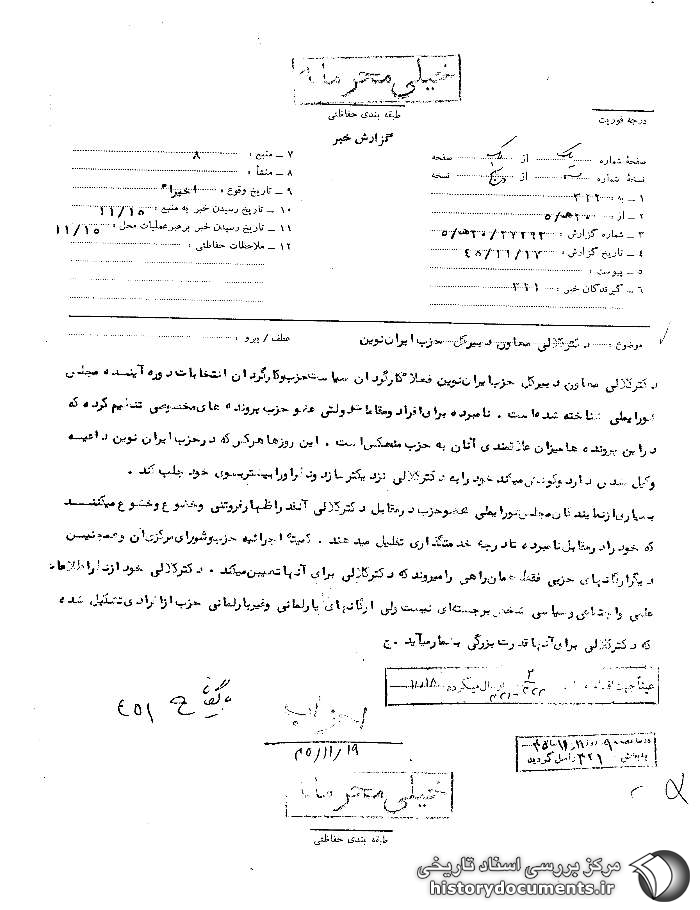 خیلی محرمانه
طبقه بندی حفاظتی
درجه فوریت
گزارش خبر
صفحهٔ شماره یک از یک صفحه
نسخهٔ شماره از پنج نسخه
۱ – به : ۳۲۲
۲ – از : ۲۰ه‍/۵
۳ – شماره گزارش : ۲۰/۲۷۲۹۲ه‍/۵
۴ – تاریخ گزارش : ۴۵/۱۱/۱۷
۵ – پیوست :
۶ – گیرندگان خبر : ۳۲۱
۷ – منبع : ۸
۸ – منشأ :
۹ – تاریخ وقوع : اخیرا"
۱۰ – تاریخ رسیدن خبر به منبع : ۱۱/۱۵
۱۱ – تاریخ رسیدن خبر برهبر عملیات محل : ۱۱/۱۵
۱۲ – ملاحظات حفاظتی :
موضوع : دکتر کلالی معاون دبیرکل حزب ایران نوین
عطف / پیرو :
دکتر کلالی معاون دبیرکل حزب ایران نوین فعلا" کارگردان سیاست حزب و کارگردان انتخابات دوره آینده مجلس
شورایملی شناخته شده است . نامبرده برای افراد و مقامات دولتی عضو حزب پرونده های مخصوصی تنظیم کرده که
در این پرونده ها میزان علاقمندی آنان به حزب منعکس است . این روزها هرکس که در حزب ایران نوین داعیه
وکیل شدن دارد و کوشش میکند خود را به دکتر کلالی نزدیکتر سازد و نظر او را بیشتر بسوی خود جلب کند .
بسیاری از نمایندگان مجلس شورایملی عضو حزب در مقابل دکتر کلالی آنقدر اظهار فروتنی و خضوع و خشوع میکنند
که خود را در مقابل نامبرده تا درجه خدمتگذاری تقلیل میدهند . کمیته اجرائیه حزب و شورای مرکزی آن و همچنین
دیگر ارگانهای حزبی فقط همان راهی را میروند که دکتر کلالی برای آنها تعیین میکند . دکتر کلالی خود از نظر اطلاعات
علمی و اجتماعی و سیاسی شخص برجسته‌ای نیست ولی ارگانهای پارلمانی و غیرپارلمانی حزب از افرادی تشکیل شده
که دکتر کلالی برای آنها قدرت بزرگی بشمار میآید . ج
عیناً جهت ارسال میگردد
۴۵/۱۱/۱۹
۳۲۱ واصل گردید
خیلی محرمانه
طبقه بندی حفاظتی
مرکز بررسی اسناد تاریخی
historydocuments.ir